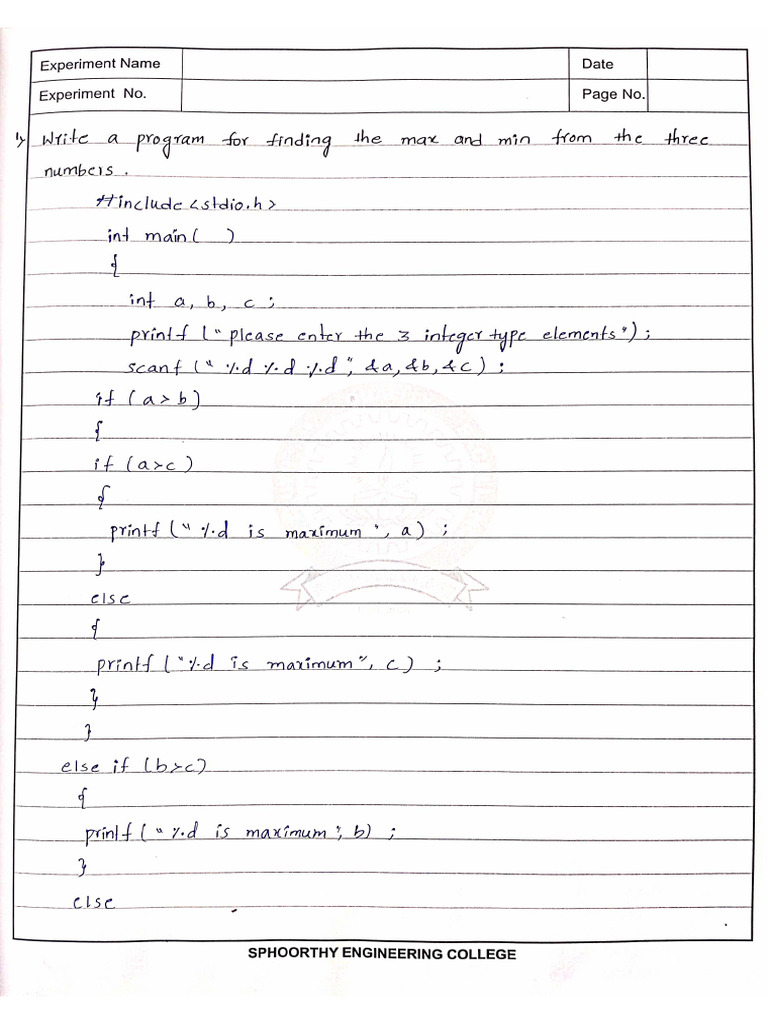 Experiment Name
Date
Experiment No.
Page No.
1) Write a program for finding the max and min from the three
numbers.
#include <stdio.h>
int main( )
{
int a, b, c ;
printf ("please enter the 3 integer type elements");
scanf ("%d %d %d", &a, &b, &c) ;
if (a>b)
{
if (a>c)
{
printf ("%d is maximum", a) ;
}
else
{
printf ("%d is maximum", c) ;
}
}
else if (b>c)
{
printf ("%d is maximum", b) ;
}
else
SPHOORTHY ENGINEERING COLLEGE